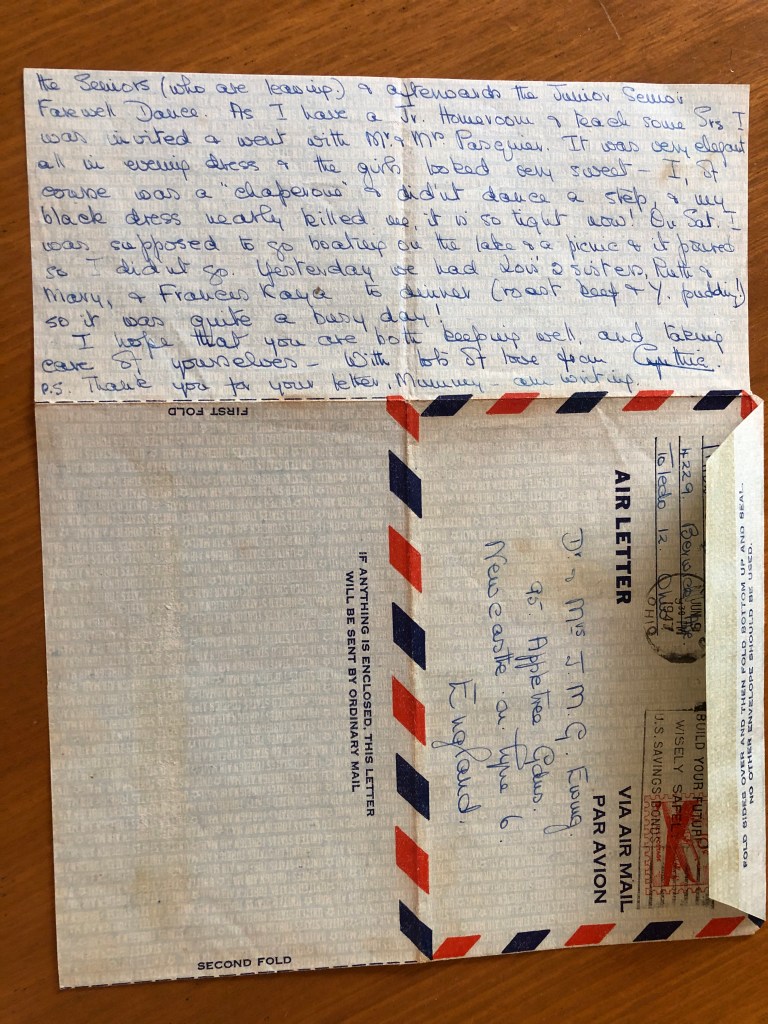 the Seniors (who are leaving) & afterwards the Junior Senior
Farewell Dance. As I have a Jr. Homeroom & teach some Srs I
was invited & went with Mr. & Mrs Pasquier. It was very elegant
all in evening dress & the girls looked very sweet – I, of
course was a "chaperone" & didn't dance a step, & my
black dress nearly killed me, it is so tight now! On Sat. I
was supposed to go boating on the lake & a picnic & it poured
so I didn't go. Yesterday we had Lois' 2 sisters, Ruth &
Mary, & Frances Kaya to dinner (roast beef & Y. pudding!)
so it was quite a busy day!
I hope that you are both keeping well, and taking
care of yourselves – With lots of love from Cynthia.
P.S. Thank you for your letter, Mummy – am writing.
FIRST FOLD
AIR LETTER
VIA AIR MAIL
PAR AVION
Dr & Mrs J. M. G. Ewing
95. Appletree Gdns.
Newcastle. n. Tyne 6.
England.
IF ANYTHING IS ENCLOSED, THIS LETTER
WILL BE SENT BY ORDINARY MAIL
SECOND FOLD
4229
Toledo 12. Ohio
OHIO
BUILD YOUR FUTURE
WISELY SAFELY
U.S. SAVINGS BONDS
NO OTHER ENVELOPE SHOULD BE USED.
FOLD SIDES OVER AND THEN FOLD BOTTOM UP AND SEAL.